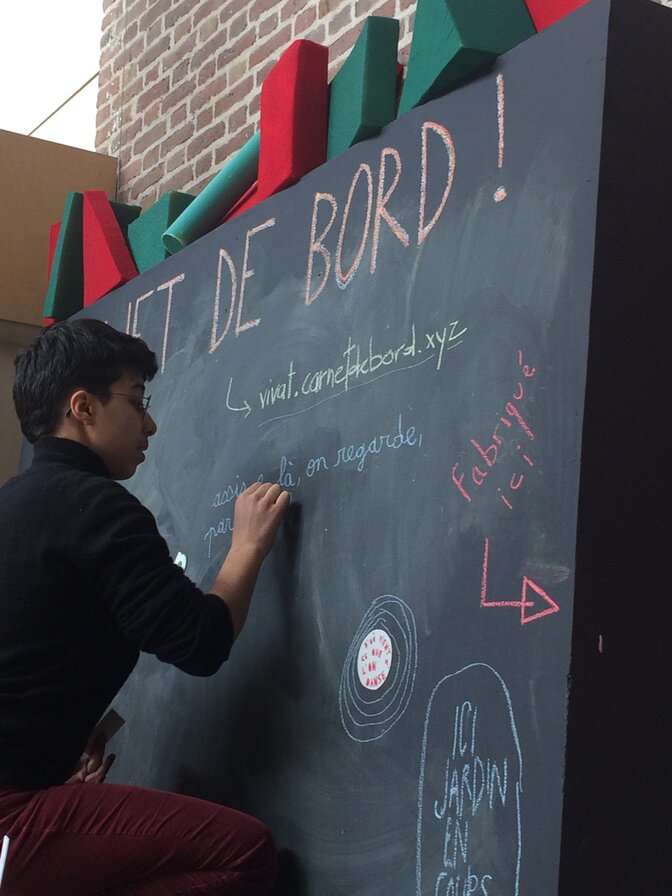 NET DE BORD !
vivat.carnetdebord.xyz
là, on regarde,
par
Fabriqué
ici,
D'OÙ VIENT
CE QUE
L'ON
DANSE ?
ICI
JARDIN
EN
COURS